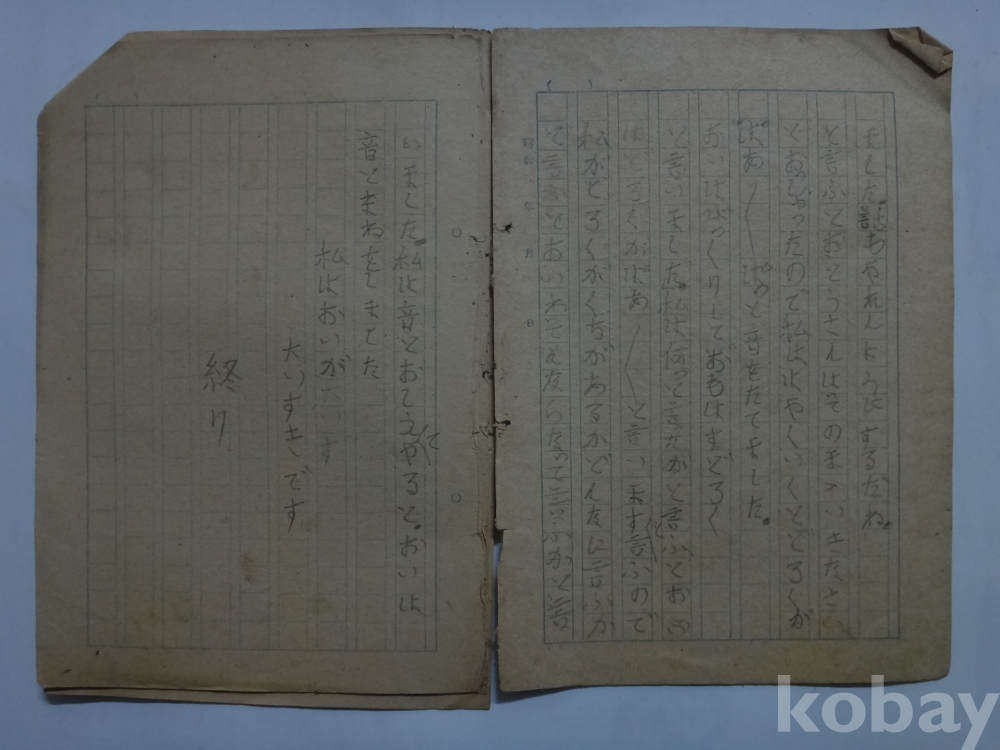 ました。話ちやれんようにするだね。
と言ふとおとうさんはそのまゝいきたと
くおしやつたので私ははやくいくとどろくが
ばあ〱 ばつと音をたてました。
おいはびつくりしておもはずどろく
と言いました。私は何つて言たかと言ふとおい
はどろくがばあ〱と言います言ふので
私がどろくがくちがあるかどんなに言ふか
と言ふとおいわそんならなつて言ふかと言
いました。私は音とおしえてやると。おいは
音とまねをしました
私はおいが大いす
大いすきです
終り
昭和 年 月 日
kobay